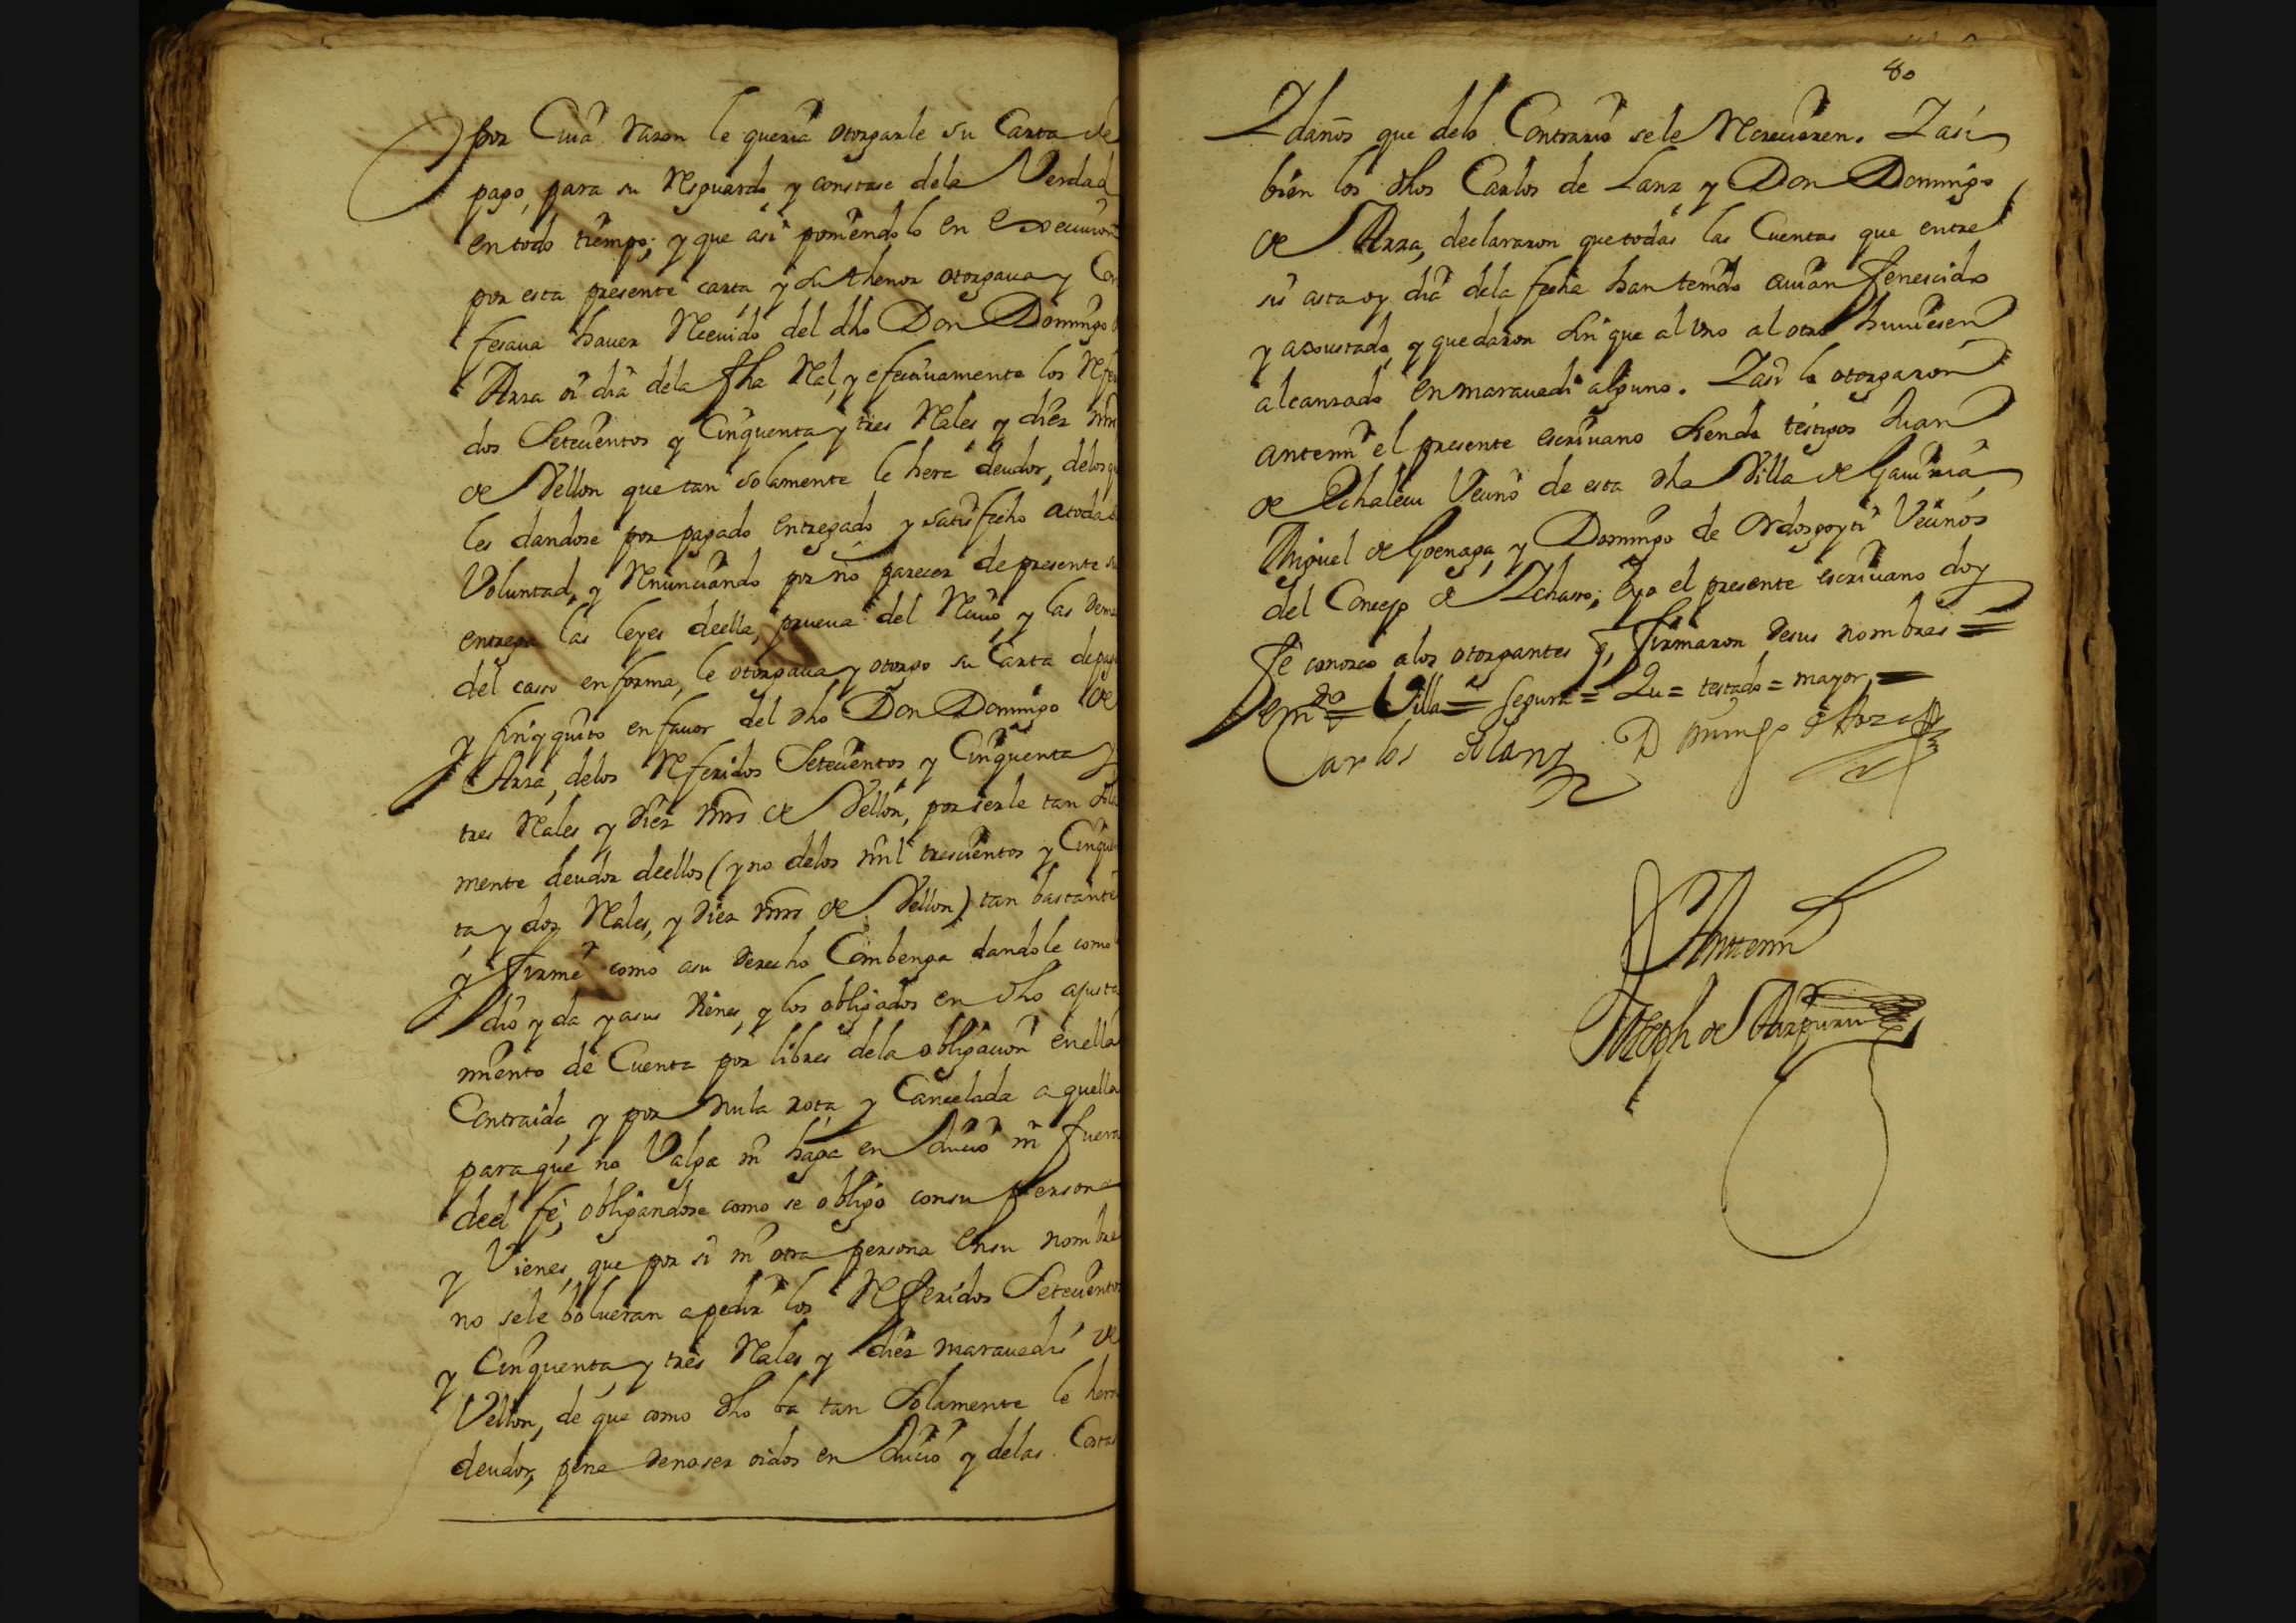 por Cuia Razon le queria otorgarle su Carta de
pago, para su Resguardo, y constase dela Verdad
en todo tiempo; y que asi poniendolo en execucion
por esta presente carta y su thenor otorgaua y Con
fesaua hauer Receuido del dho Don Domingo
Arza oi dia dela fha Real, y efectiuamente los Refe
dos Setecientos y Cinquenta y tres Reales y diez mrs
de Vellon que tan solamente le hera deudor, delos qu
les dandose por pagado entregado y satisfecho atoda su
Voluntad, y Renunciando por no parecer de presente su
entrega las leyes deella, prueua del Reciuo, y las dema
del caso en forma, le otorgaua y otorgo su Carta de pago
y finyquito en fauor del dho Don Domingo de
Arza, delos Referidos Setecientos y Cinquenta y
tres Reales y Diez mrs de Vellon, por serle tan sola
mente deudor deellos (y no delos mil trescientos y Cinquen
ta y dos Reales, y Diez mrs de Vellon) tan bastante
y firme como a su derecho Combenga dandole como
dio y da y asus Bienes, y los obligados en dho ajusta
miento de Cuenta por libres dela obligacion enella
Contraida, y por nula rota y Cancelada aquella
para que no Valga ni haga en Juicio ni fuera
deel fe, obligandose como se obligo consu persona
y Vienes, que por si ni otra persona ensu nombre
no sele bolueran apedir los Referidos Setecientos
y Cinquenta y tres Reales y diez marauedis de
Vellon, de que como dho ba tan Solamente le hera
deudor, pena denoser oidos en Juicio y delas Costas
80
Y daños que delo Contrario sele Recreuieren. Y asi
bien los dhos Carlos de Lanz y Don Domingo
de Arza, declararon que todas las Cuentas que entre
si asta oy dia dela fecha han tenido auian fenescido
y axustado, y quedaron sin que al Uno al otro huuiesen
alcanzado en marauedi alguno. Y asi lo otorgaron
antemi el presente escriuano siendo testigos Juan
de Echalecu Vecino de esta dha Villa de Gauiria,
Miguel de Goenaga, y Domingo de Ordozgoyti Vecinos
del Concejo de Ychasso; Eyo el presente escriuano doy
fe conozco alos otorgantes q, firmaron desus nombres =
em.do = Villa = Segura = Qu = testado = mayor =
Carlos de Lanz Domingo de Arza
Antemi
Joseph de Aizpuru